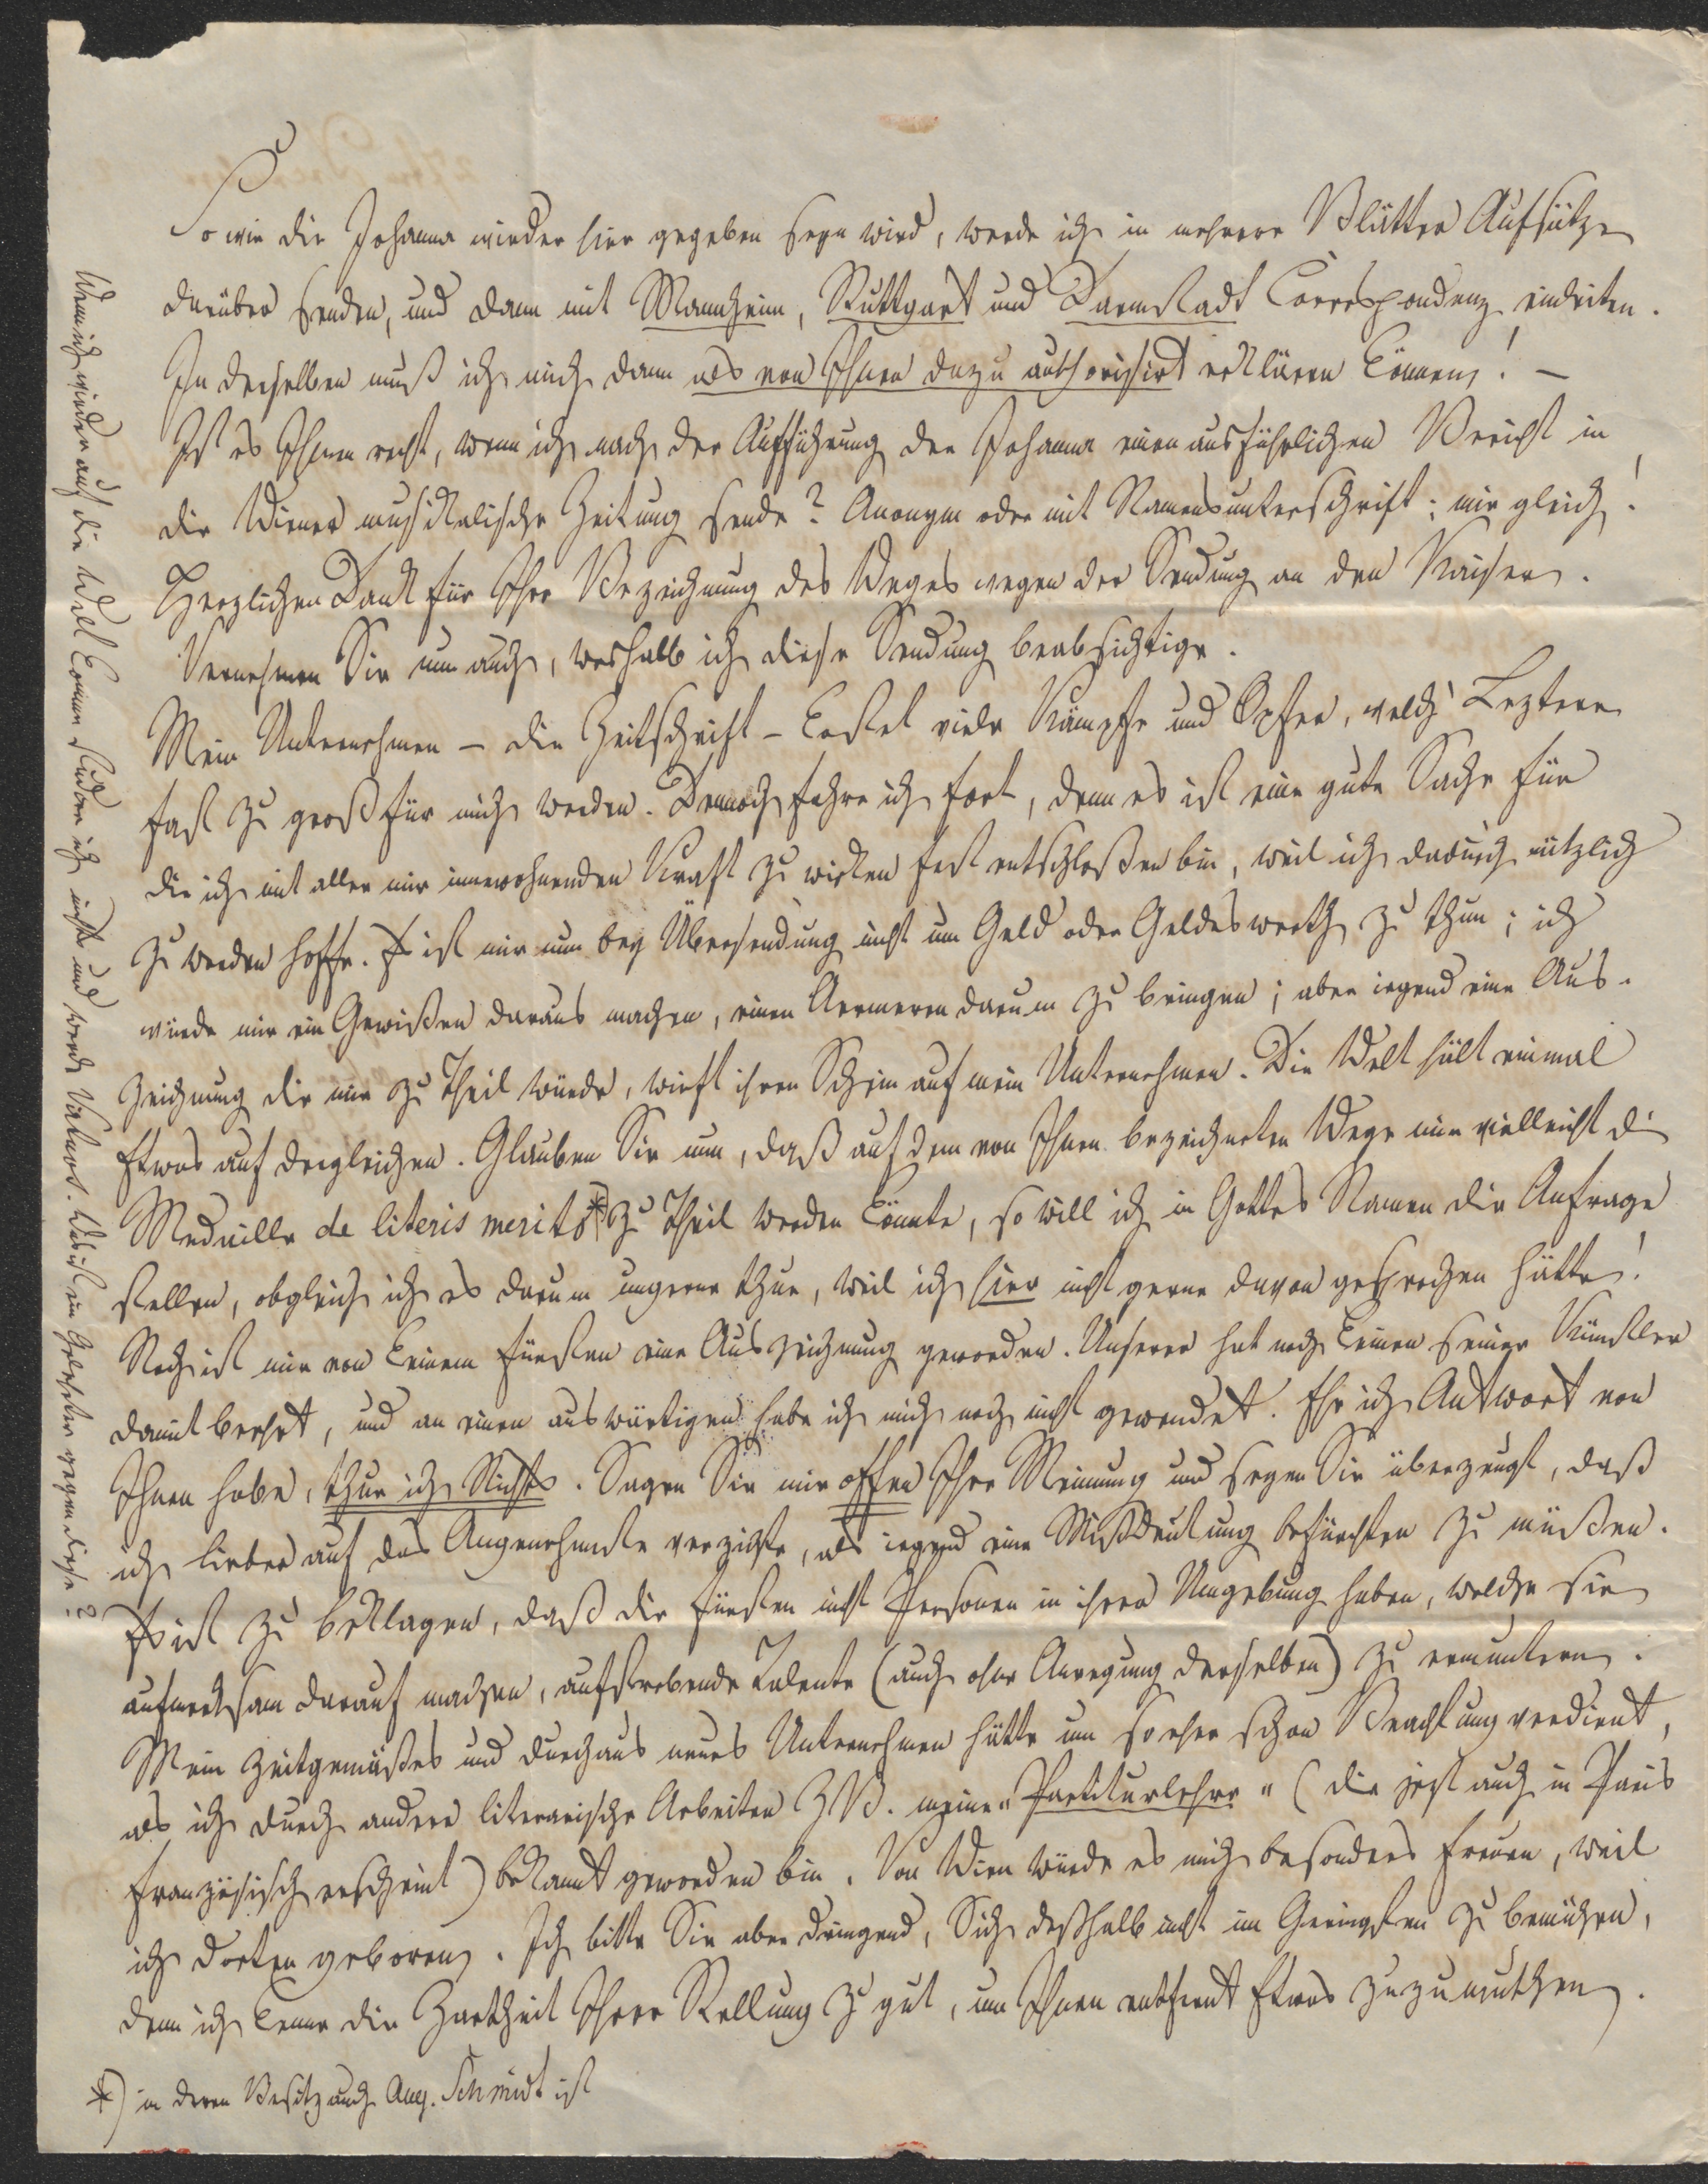 So wie die Johanna wieder hier gegeben seyn wird, werde ich in mehrere Blätter Aufsätze
darüber senden, und dann mit Mannheim, Stuttgart und Darmstadt Correspondenz einleiten.
In derselben muß ich mich dann als von Ihnen dazu authorisirt erklären können! –
Ist es Ihnen recht, wenn ich nach der Aufführung der Johanna einen ausführlichen Bericht in
die Wiener musikalische Zeitung sende? Anonym oder mit Namensunterschrift; mir gleich!
Herzlichen Dank für Ihre Bezeichnung des Weges wegen der Sendung an den Kaiser.
Vernehmen Sie nun auch, weshalb ich diese Sendung beabsichtige.
Mein Unternehmen – die Zeitschrift – kostet viele Kämpfe und Opfer, welch' Leztere
fast zu groß für mich werden. Dennoch fahre ich fort, denn es ist eine gute Sache für
die ich mit aller mir innewohnenden Kraft zu wirken fest entschloßen bin, weil ich dadurch nützlich
zu werden hoffe. Es ist mir nun bey Übersendung nicht um Geld oder Geldeswerth zu thun; ich
würde mir ein Gewißen daraus machen, einen Aermeren darum zu bringen; aber irgend eine Aus-
zeichnung die mir zu Theil würde, wirft ihren Schein auf mein Unternehmen. Die Welt hält einmal
Etwas auf dergleichen. Glauben Sie nun, daß auf dem von Ihnen bezeichneten Wege mir vielleicht die
Medaille de literis meritis *) zu Theil werden könnte, so will ich in Gottes Namen die Anfrage
stellen, obgleich ich es darum ungerne thue, weil ich hier nicht gerne davon gesprochen hätte!
Noch ist mir von keinem Fürsten eine Auszeichnung geworden. Unserer hat noch keinen seiner Künstler
damit beehrt, und an einen auswärtigen habe ich mich noch nicht gewendet. Ehe ich Antwort von
Ihnen habe, thue ich Nichts. Sagen Sie mir offen Ihre Meinung und seyen Sie überzeugt, daß
ich lieber auf das Angenehmste verzichte, als irgend eine Mißdeutung befürchten zu müßen.
Es ist zu beklagen, daß die Fürsten nicht Personen in ihrer Umgebung haben, welche sie
aufmerksam darauf machen, aufstrebende Talente (auch ohne Anregung derselben) zu ermuntern.
Mein zeitgemäßes und durchaus neues Unternehmen hätte um so eher schon Beachtung verdient,
als ich durch andere literarische Arbeiten z. B. meine "Partiturlehre" (die jezt auch in Paris
französisch erscheint) bekannt geworden bin. Von Wien würde es mich besonders freuen, weil
ich dorten geboren. Ich bitte Sie aber dringend, Sich deßhalb nicht im Geringsten zu bemühen,
denn ich kenne die Zartheit Ihrer Stellung zu gut, um Ihnen entfernt Etwas zuzumuthen.
*) in deren Besitz auch Aug. Schmidt ist
Wenn ich wieder auf die Welt komme studire ich nicht und werde . Was ist ein Gelehrter gegen diese?